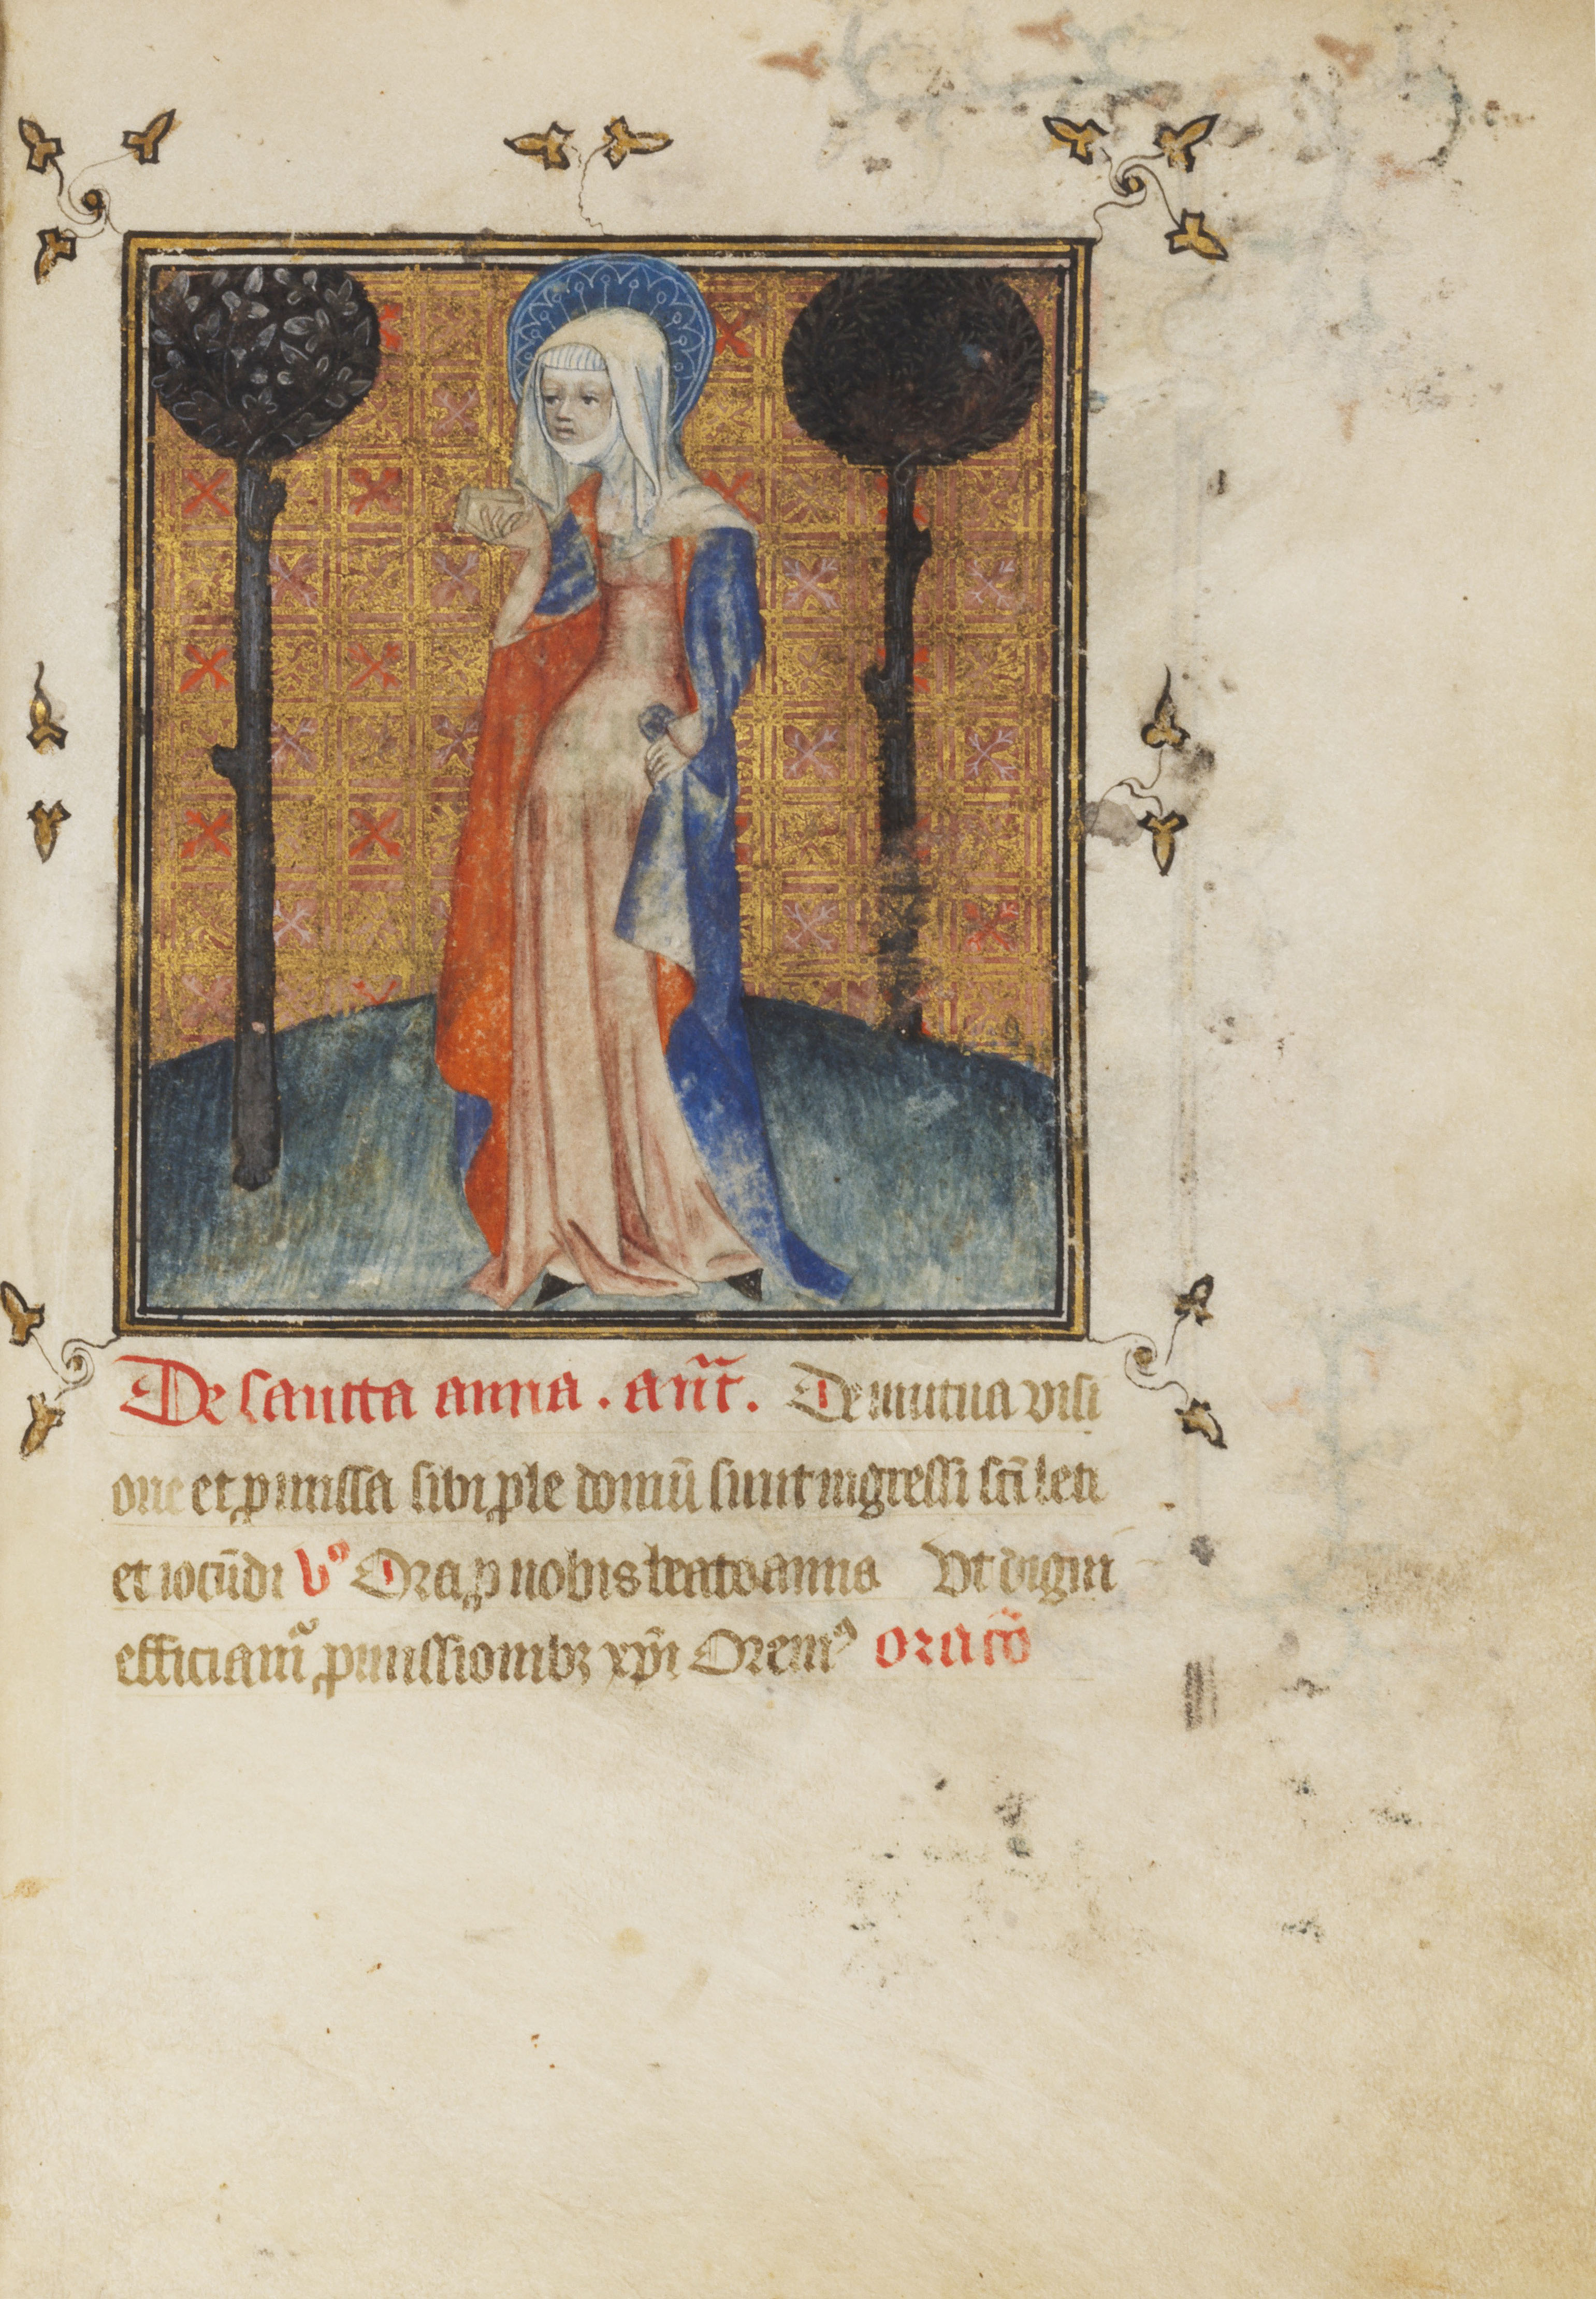 De sancta anna . an̄t . De mutua visi
one et ꝓmissa sibi ꝓle domū sunt ingressi scī leti
et iocūdi V⁹ Ora ꝓ nobis beata anna Vt digni
efficiam᷑ ꝓmissionibꝫ xp̄i Orem⁹ oracō